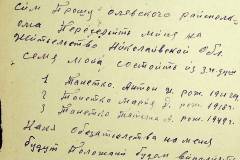 Сим Прошу олевского райсполк
ома Переселить меня на
жительство Николаевской Обл.
Семя моя состоить из 3х душ
1 Панетко. Антон И. рож. 191
2 Панетко Мария Г. рож. 1918г.
3 Панетко Татяна А. рож. 1949г.
Наня обязательства на меня
будут Положани будем